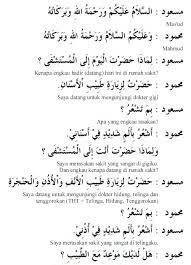 مسعود : السَّلاَمُ عَلَيْكُمْ وَرَحْمَةُ اللهِ وَبَرَكَاتُهُ
Mas'ud
محمود : وَعَلَيْكُمُ السَّلاَمُ وَرَحْمَةُ اللهِ وَبَرَكَاتُهُ
Mahmud
مسعود : لِمَاذَا حَضَرْتَ الْيَوْمَ إِلَى الْمُسْتَشْفَى ؟
Kenapa engkau hadir (datang) hari ini di rumah sakit?
محمود : حَضَرْتُ لِزِيَارَةِ طَبِيْبِ الْأَسْنَانِ
Saya datang untuk mengunjungi dokter gigi
مسعود : بِمَ تَشْعُرُ ؟
Apa yang engkau rasakan?
محمود : أَشْعُرُ بِأَلَمٍ شَدِيْدٍ فِيْ أَسْنَانِيْ
Saya merasakan sakit yang sangat di gigiku.
وَلِمَاذَا حَضَرْتَ إِلَى الْمُسْتَشْفَى ؟
Dan engkau kenapa datang di rumah sakit?
مسعود : حَضَرْتُ لِزِيَارَةِ طَبِيْبِ الْأَنْفِ وَالْأُذُنِ وَالْحَنْجَرَةِ
Saya datang untuk mengunjungi dokter hidung, telinga dan
tenggorokan (THT = Telinga, Hidung, Tenggorokan)
محمود : بِمَ تَشْعُرُ ؟
مسعود : أَشْعُرُ بِأَلَمٍ شَدِيْدٍ فِيْ أُذُنِيْ
Saya merasakan sakit yang sangat di telingaku.
محمود :